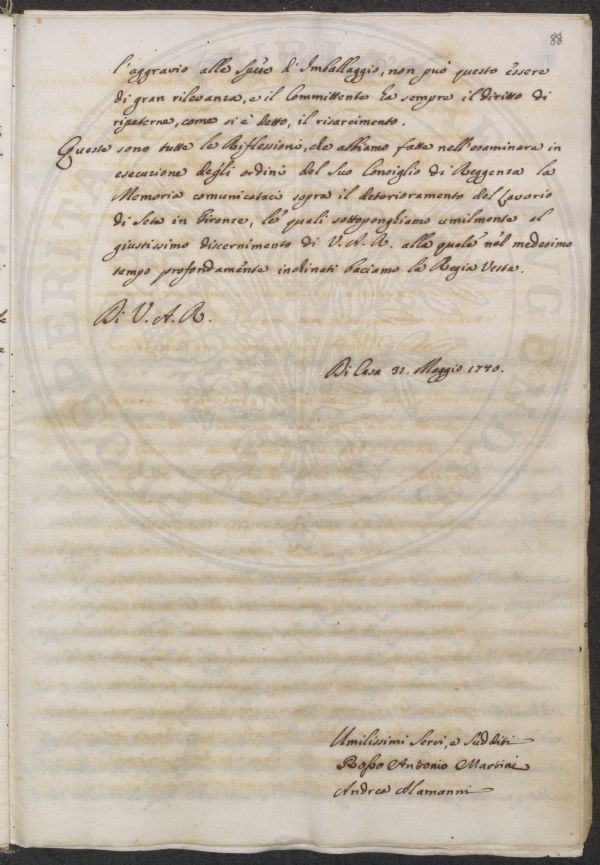 88
l'aggravio alle spese d'Imballaggio, non può questo essere
di gran rilevanza, e il Committente ha sempre il diritto di
ripeterne, come si è detto, il risarcimento.
Queste sono tutte le Riflessioni, che abbiamo fatte nell'esaminare in
esecuzione degli ordini del Suo Consiglio di Reggenza la
Memoria comunicataci sopra il deterioramento del Lavorio
di Seta in Firenze, le quali sottoponghiamo umilmente al
giustissimo discernimento di V. A. R. alla quale nel medesimo
tempo profondamente inclinati baciamo la Regia Veste.
Di V. A. R.
Di Casa 31. Maggio 1740.
Umilissimi Servi, e Sudditi
Rosso Antonio Martini
Andrea Alamanni